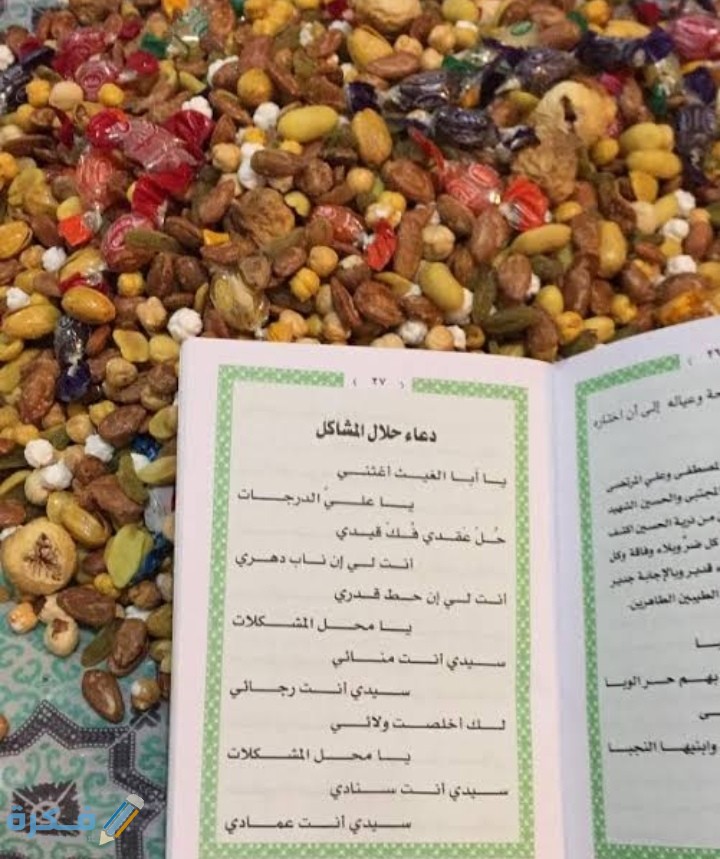 ٢٧
دعاء حلال المشاكل
يا أبا الغيث أغثني
يا عليَّ الدرجات
حُلْ عَقدي فُكْ قيدي
أنت لي إن ناب دهري
أنت لي إن حط قدري
يا محل المشكلات
سيدي أنت منائي
سيدي أنت رجائي
لك أخلصت ولائي
يا محل المشكلات
سيدي أنت سنادي
سيدي أنت عمادي
حة وعياله إلى أن اختاره
لمصطفى وعلي المرتضى
لمجتبى والحسين الشهيد
من ذرية الحسين اكشف
كل ضر وبلاء وفاقة وكل
قدير وبالإجابة جدير
الطيبين الطاهرين.
بهم حر الوبا
وابنيها النجبا
فكرة